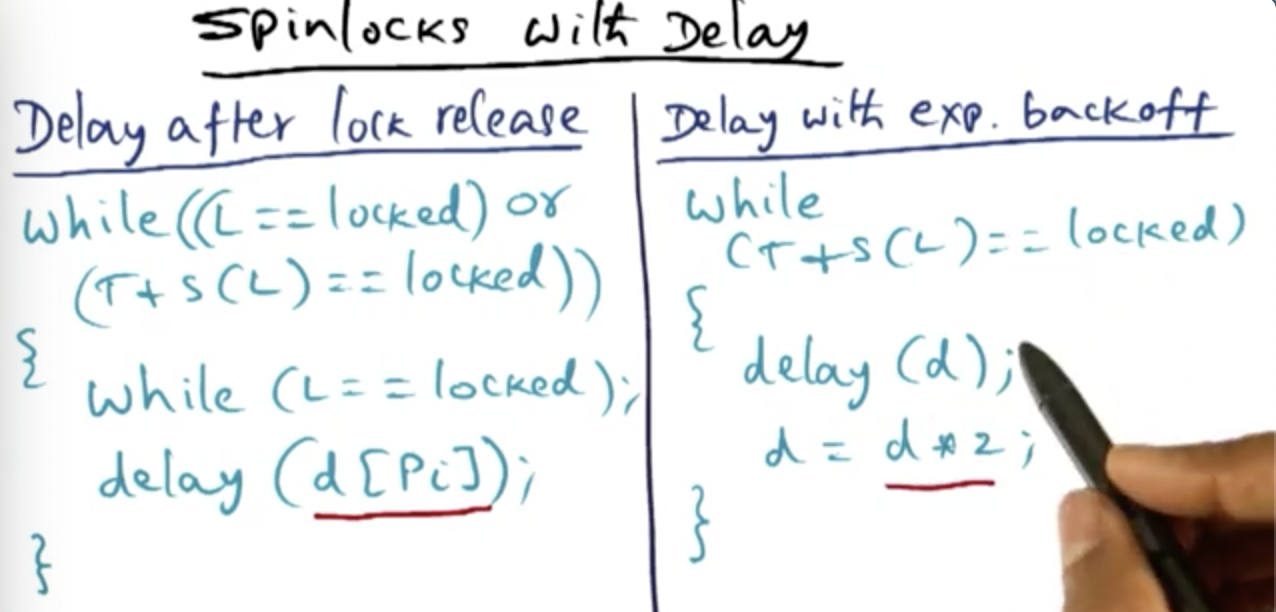 Spinlocks with Delay
Delay after lock release
while((L == locked) or
(T+S(L) == locked))
{
while (L == locked);
delay (d[Pi]);
}
Delay with exp. backoff
while
(T+S(L)== locked)
{
delay (d);
d = d*2;
}